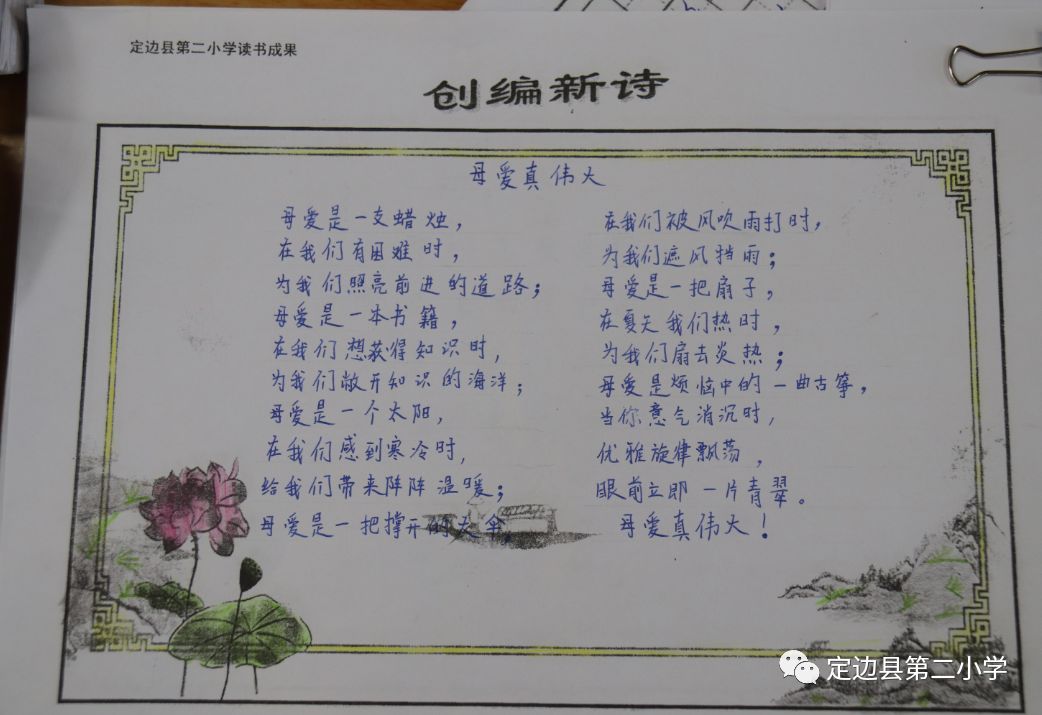 定边县第二小学读书成果
创编新诗
母爱真伟大
母爱是一支蜡烛，
在我们有困难时，
为我们照亮前进的道路；
母爱是一本书籍，
在我们想获得知识时，
为我们敞开知识的海洋；
母爱是一个太阳，
在我们感到寒冷时，
给我们带来阵阵温暖；
母爱是一把撑开的大伞，
在我们被风吹雨打时，
为我们遮风挡雨；
母爱是一把扇子，
在夏天我们热时，
为我们扇去炎热；
母爱是烦恼中的一曲古筝，
当你意气消沉时，
优雅旋律飘荡，
眼前立即一片青翠。
母爱真伟大！
定边县第二小学